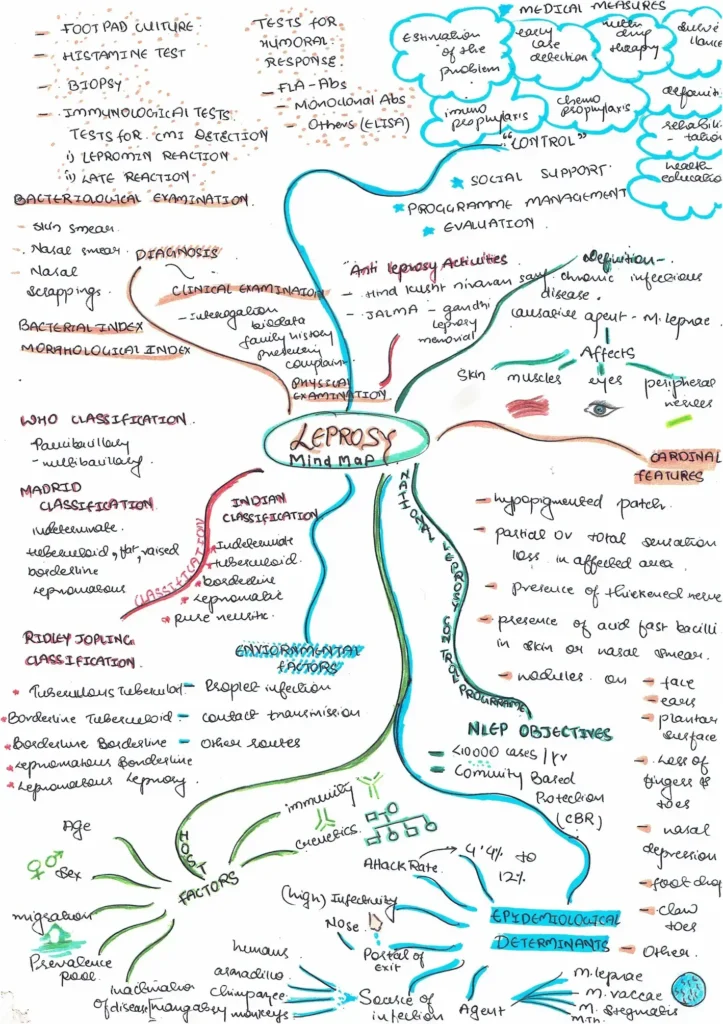 - FOOTPAD CULTURE
- HISTAMINE TEST
- BIOPSY
- IMMUNOLOGICAL TESTS
TESTS FOR CMI DETECTION
i) LEPROMIN REACTION
ii) LATE REACTION
TESTS FOR
HUMORAL
RESPONSE.
- FLA-Abs
- Monoclonal Abs
- Others (ELISA)
* MEDICAL MEASURES
Estimation
of the
problem
early
case
detection
multi
drug
therapy
immuno
prophylaxis
chemo
prophylaxis
deformit
rehabili
-tation
health
education
"CONTROL"
* SOCIAL SUPPORT
* PROGRAMME MANAGEMENT
* EVALUATION
BACTERIOLOGICAL EXAMINATION
- Skin smear
- Nasal smear
- Nasal
scrappings
BACTERIAL INDEX
MORPHOLOGICAL INDEX
DIAGNOSIS
CLINICAL EXAMINATION
- Interogation
biodata
family history
presenting
complain
PHYSICAL
EXAMINATION
"Anti leprosy Activities
- Hind Kusht nivaran sang
- JALMA - gandhi
leprosy
memorial
Definition-
chronic infectious
disease.
causative agent - M. leprae.
Affects
skin muscles eyes peripheral
nerves
LEPROSY
MIND MAP
WHO CLASSIFICATION
- Paucibacillary
- multibacillary
MADRID
CLASSIFICATION
indeterminate
tuberculoid, flat, raised
borderline
lepromatous
CLASSIFICATION
INDIAN
CLASSIFICATION
* Indeterminate
* tuberculoid
* borderline
* lepromatic
* pure neuritic
RIDLEY JOPLING
CLASSIFICATION
* Tuberculous Tuberculoid
* Borderline Tuberculoid
* Borderline Borderline
* Lepromatous Borderline
* Lepromatous Leprosy
ENVIORNMENTAL
FACTORS
- Droplet infection
- contact transmission
- other routes
NATIONAL LEPROSY CONTROL PROGRAMME
NLEP OBJECTIVES
- <10000 cases / yr
- Comunity Based
Protection
(CBR)
CARDINAL
FEATURES
- hypopigmented patch
- partial or total sensation
loss in affected area
- presence of thickened nerve
- presence of acid fast bacilli
in skin or nasal smear.
- nodules on
- face
- ears
- plantar
surface
- Loss of
fingers &
toes
- nasal
depression
- foot drop
- claw
toes
- Other.
HOST
FACTORS
Age
Sex
migration
Prevalence
pool
inaclination
of disease
immunity
Genetics
EPIDEMIOLOGICAL
DETERMINANTS
Attack Rate
4.4% to
12%
(high) Infectivity
Nose
Portal of
exit
Source of
infection
humans
armadillo
chimpanzee
mangabey monkeys
Agent
M. leprae
M. vaccae
M. Smegmatis